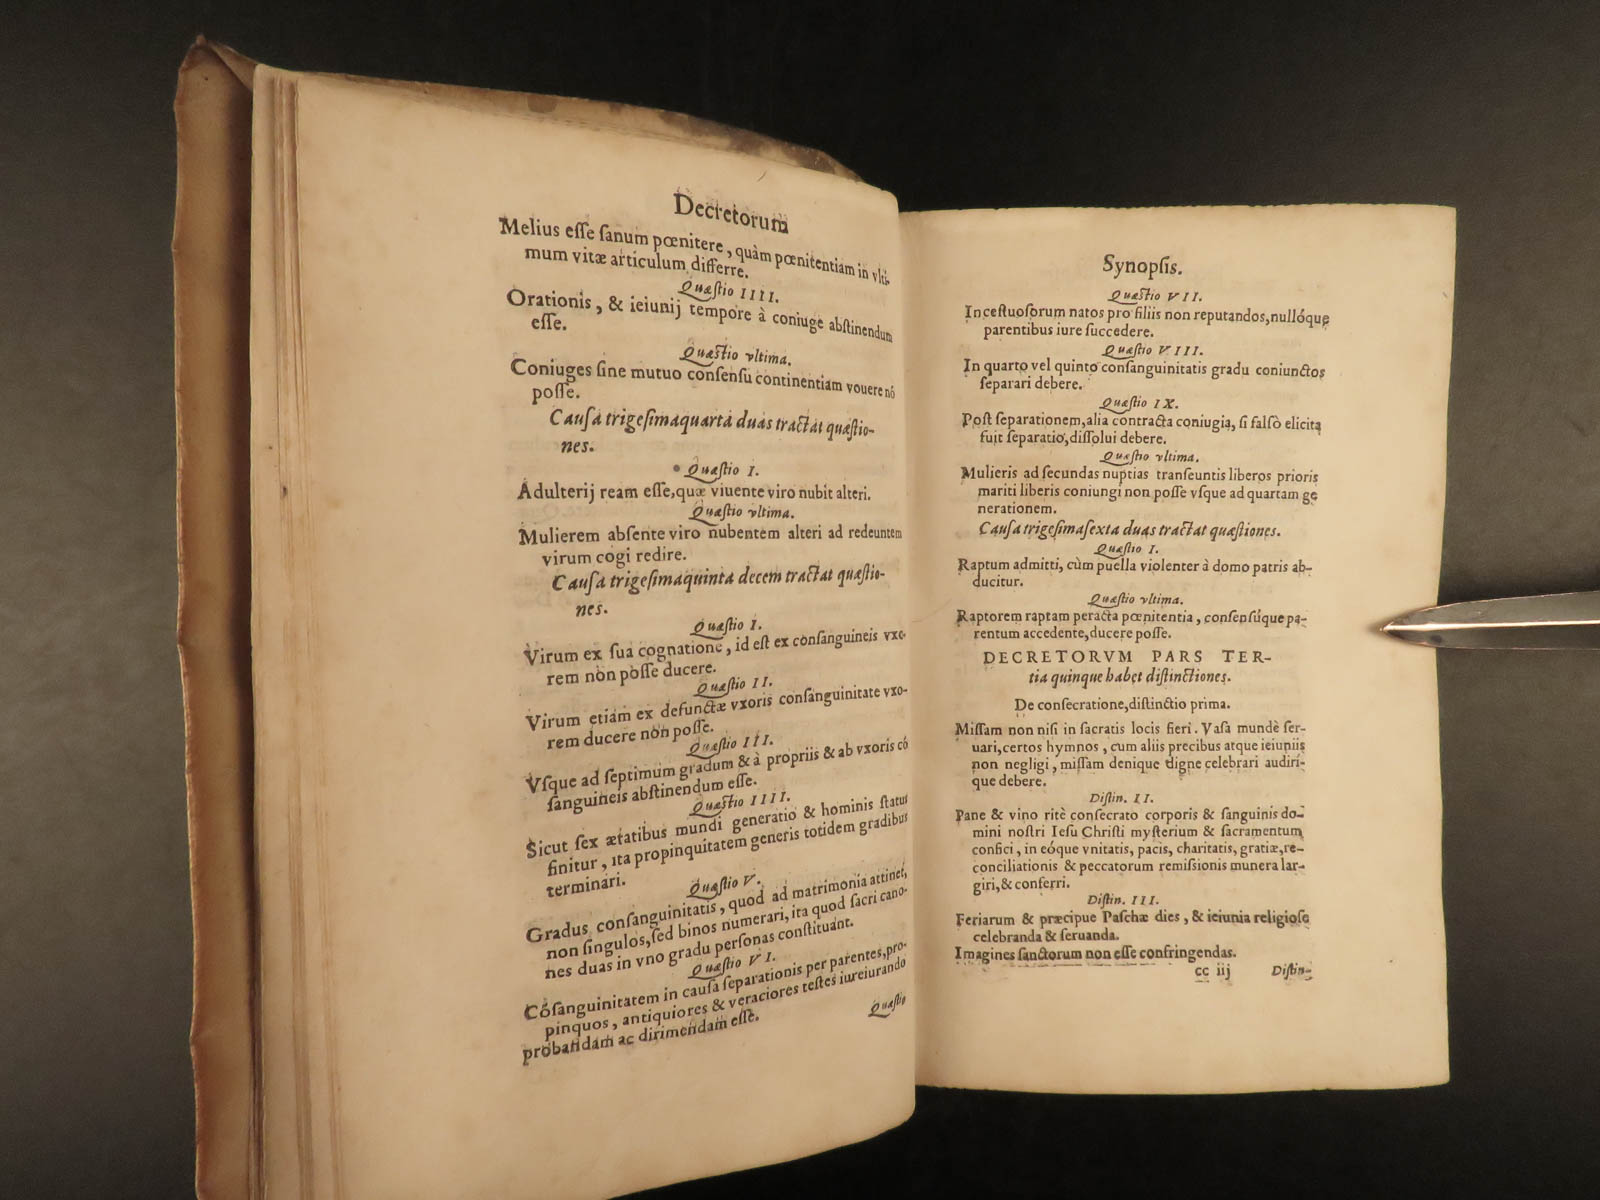 Decretorum
Melius eſſe ſanum pœnitere, quàm pœnitentiam in vlti-
mum vitæ articulum differre.
Quæſtio IIII.
Orationis, & ieiunij tempore à coniuge abſtinendum
eſſe.
Quæſtio vltima.
Coniuges ſine mutuo conſenſu continentiam vouere nō
poſſe.
Cauſa trigeſimaquarta duas tractat quæſtio-
nes.
Quæſtio I.
Adulterij ream eſſe, quæ viuente viro nubit alteri.
Quæſtio vltima.
Mulierem abſente viro nubentem alteri ad redeuntem
virum cogi redire.
Cauſa trigeſimaquinta decem tractat quæſtio-
nes.
Quæſtio I.
Virum ex ſua cognatione, id eſt ex conſanguineis vxo-
rem non poſſe ducere.
Quæſtio II.
Virum etiam ex defunctæ vxoris conſanguinitate vxo-
rem ducere non poſſe.
Quæſtio III.
Vſque ad ſeptimum gradum & à propriis & ab vxoris cō
ſanguineis abſtinendum eſſe.
Quæſtio IIII.
Sicut ſex ætatibus mundi generatio & hominis ſtatus
finitur, ita propinquitatem generis totidem gradibus
terminari.
Quæſtio V.
Gradus conſanguinitatis, quod ad matrimonia attinet,
non ſingulos, ſed binos numerari, ita quod ſacri cano-
nes duas in vno gradu perſonas conſtituant.
Quæſtio VI.
Cōſanguinitatem in cauſa ſeparationis per parentes, pro-
pinquos, antiquiores & veraciores teſtes iureiurando
probandam ac dirimendam eſſe.
Quæſtio
Synopſis.
Quæſtio VII.
Inceſtuoſorum natos pro filiis non reputandos, nullóque
parentibus iure ſuccedere.
Quæſtio VIII.
In quarto vel quinto conſanguinitatis gradu coniunctos
ſeparari debere.
Quæſtio IX.
Poſt ſeparationem, alia contracta coniugia, ſi falſò elicita
fuit ſeparatio, diſſolui debere.
Quæſtio vltima.
Mulieris ad ſecundas nuptias tranſeuntis liberos prioris
mariti liberis coniungi non poſſe vſque ad quartam ge
nerationem.
Cauſa trigeſimaſexta duas tractat quæſtiones.
Quæſtio I.
Raptum admitti, cùm puella violenter à domo patris ab-
ducitur.
Quæſtio vltima.
Raptorem raptam peracta pœnitentia, conſenſúque pa-
rentum accedente, ducere poſſe.
DECRETORVM PARS TER-
tia quinque habet diſtinctiones.
De conſecratione, diſtinctio prima.
Miſſam non niſi in ſacratis locis fieri. Vaſa mundè ſer-
uari, certos hymnos, cum aliis precibus atque ieiuniis
non negligi, miſſam denique digne celebrari audiri-
que debere.
Diſtin. II.
Pane & vino ritè conſecrato corporis & ſanguinis do-
mini noſtri Ieſu Chriſti myſterium & ſacramentum
confici, in eóque vnitatis, pacis, charitatis, gratiæ, re-
conciliationis & peccatorum remiſſionis munera lar-
giri, & conferri.
Diſtin. III.
Feriarum & præcipue Paſchæ dies, & ieiunia religioſe
celebranda & ſeruanda.
Imagines ſanctorum non eſſe confringendas.
cc iij Diſtin-